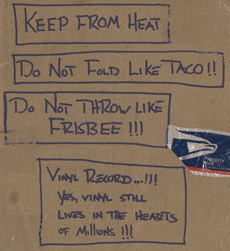 KEEP FROM HEAT
DO NOT FOLD LIKE TACO!!
DO NOT THROW LIKE
FRISBEE !!!
VINYL RECORD...!!!
YES, VINYL STILL
LIVES IN THE HEARTS
OF MILLIONS !!!